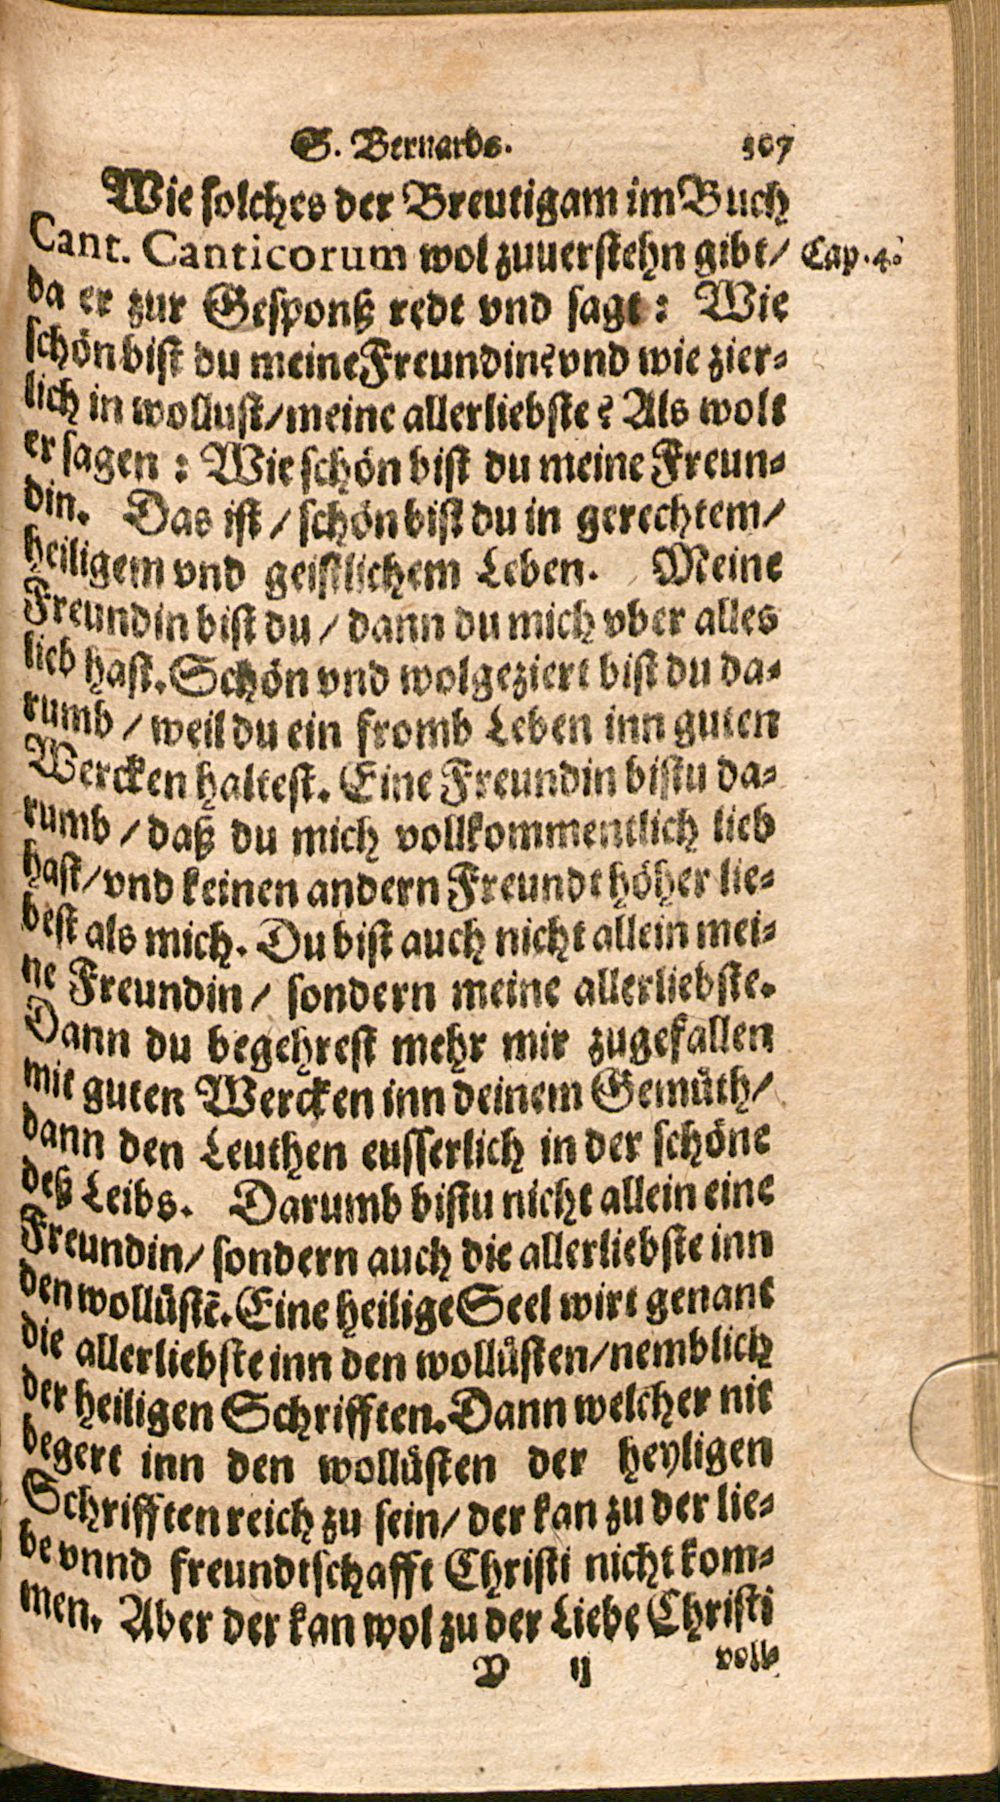 S. Bernards. 307
Wie solches der Breutigam im Buch
Cant. Canticorum wol zuuerstehn gibt/ Cap. 4.
da er zur Gesponß redt vnd sagt: Wie
schön bist du meine Freundin? vnd wie zier-
lich in wollust/ meine allerliebste? Als wolt
er sagen: Wie schön bist du meine Freun-
din. Das ist/ schön bist du in gerechtem/
heiligem vnd geistlichem Leben. Meine
Freundin bist du/ dann du mich vber alles
lieb hast. Schön vnd wolgeziert bist du da-
rumb/ weil du ein fromb Leben inn guten
Wercken haltest. Eine Freundin bistu da-
rumb/ daß du mich vollkommentlich lieb
hast/ vnd keinen andern Freundt höher lie-
best als mich. Du bist auch nicht allein mei-
ne Freundin/ sondern meine allerliebste.
Dann du begehrest mehr mir zugefallen
mit guten Wercken inn deinem Gemüth/
dann den Leuthen eusserlich in der schöne
deß Leibs. Darumb bistu nicht allein eine
Freundin/ sondern auch die allerliebste inn
den wollüstē. Eine heilige Seel wirt genant
die allerliebste inn den wollüsten/ nemblich
der heiligen Schrifften. Dann welcher nit
begert inn den wollüsten der heyligen
Schrifften reich zu sein/ der kan zu der lie-
be vnnd freundtschafft Christi nicht kom-
men. Aber der kan wol zu der Liebe Christi
V ij voll-